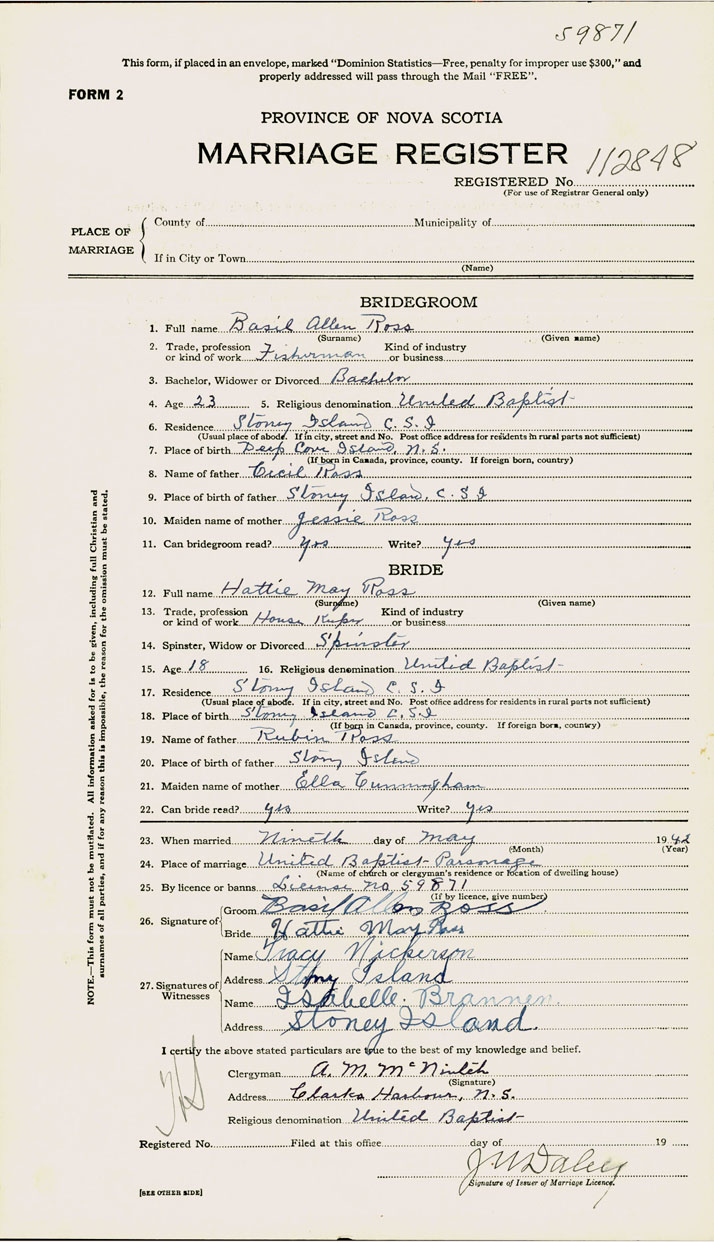 59871
This form, if placed in an envelope, marked "Dominion Statistics—Free, penalty for improper use $300," and
properly addressed will pass through the Mail "FREE".
FORM 2
PROVINCE OF NOVA SCOTIA
MARRIAGE REGISTER
112848
REGISTERED No.
(For use of Registrar General only)
PLACE OF MARRIAGE
County of Municipality of
If in City or Town
(Name)
BRIDEGROOM
1. Full name Basil Allen Ross
(Surname) (Given name)
2. Trade, profession or kind of work Fisherman Kind of industry or business
3. Bachelor, Widower or Divorced Bachelor
4. Age 23 5. Religious denomination United Baptist
6. Residence Stoney Island C.S.I
(Usual place of abode. If in city, street and No. Post office address for residents in rural parts not sufficient)
7. Place of birth Deep Cove Island, N.S.
(If born in Canada, province, county. If foreign born, country)
8. Name of father Cecil Ross
9. Place of birth of father Stoney Island, C.S.I
10. Maiden name of mother Jessie Ross
11. Can bridegroom read? Yes Write? Yes
BRIDE
12. Full name Hattie May Ross
(Surname) (Given name)
13. Trade, profession or kind of work House Keeper Kind of industry or business
14. Spinster, Widow or Divorced Spinster
15. Age 18 16. Religious denomination United Baptist
17. Residence Stony Island C.S.I
(Usual place of abode. If in city, street and No. Post office address for residents in rural parts not sufficient)
18. Place of birth Stoney Island C.S.I
(If born in Canada, province, county. If foreign born, country)
19. Name of father Rubin Ross
20. Place of birth of father Stony Island
21. Maiden name of mother Ella Cunningham
22. Can bride read? Yes Write? Yes
23. When married Nineth day of May 1942
(Month) (Year)
24. Place of marriage United Baptist Parsonage
(Name of church or clergyman's residence or location of dwelling house)
25. By licence or banns License no 59871
(If by licence, give number)
26. Signature of Groom Basil Allen Ross
Bride Hattie May Ross
27. Signatures of Witnesses
Name Tracy Nickerson
Address Stony Island
Name Isabelle Brannen
Address Stoney Island.
I certify the above stated particulars are true to the best of my knowledge and belief.
Clergyman A. M. McNintch
(Signature)
Address Clarks Harbour, N.S.
Religious denomination United Baptist
Registered No. Filed at this office day of 19
Signature of Issuer of Marriage Licence.
[SEE OTHER SIDE]
NOTE.—This form must not be mutilated. All information asked for is to be given, including full Christian and
surnames of all parties, and if for any reason this is impossible, the reason for the omission must be stated.